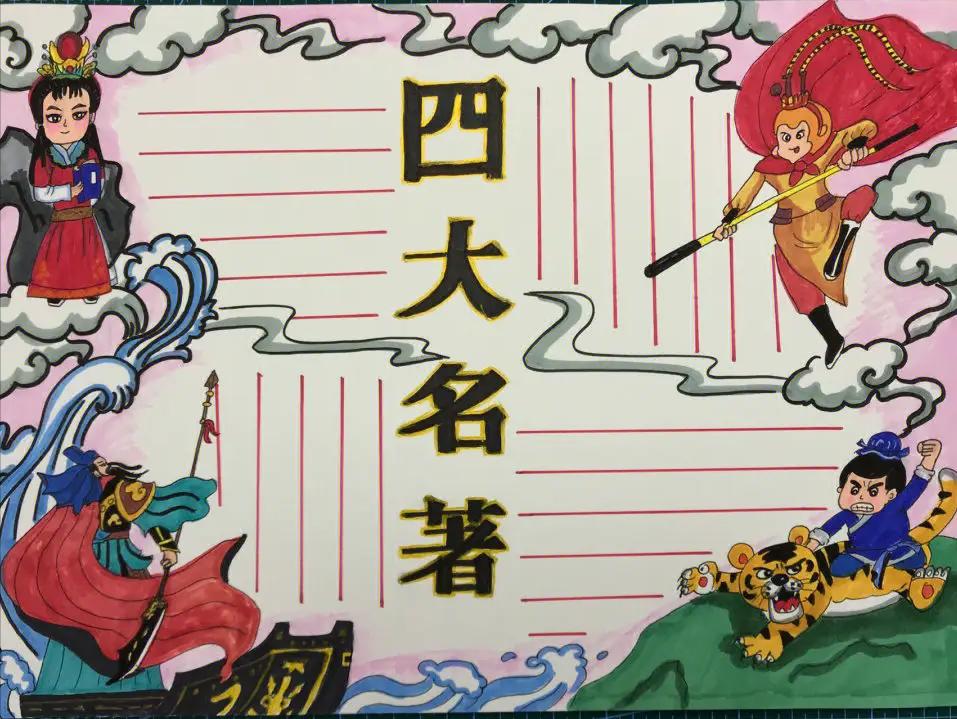 四大名著